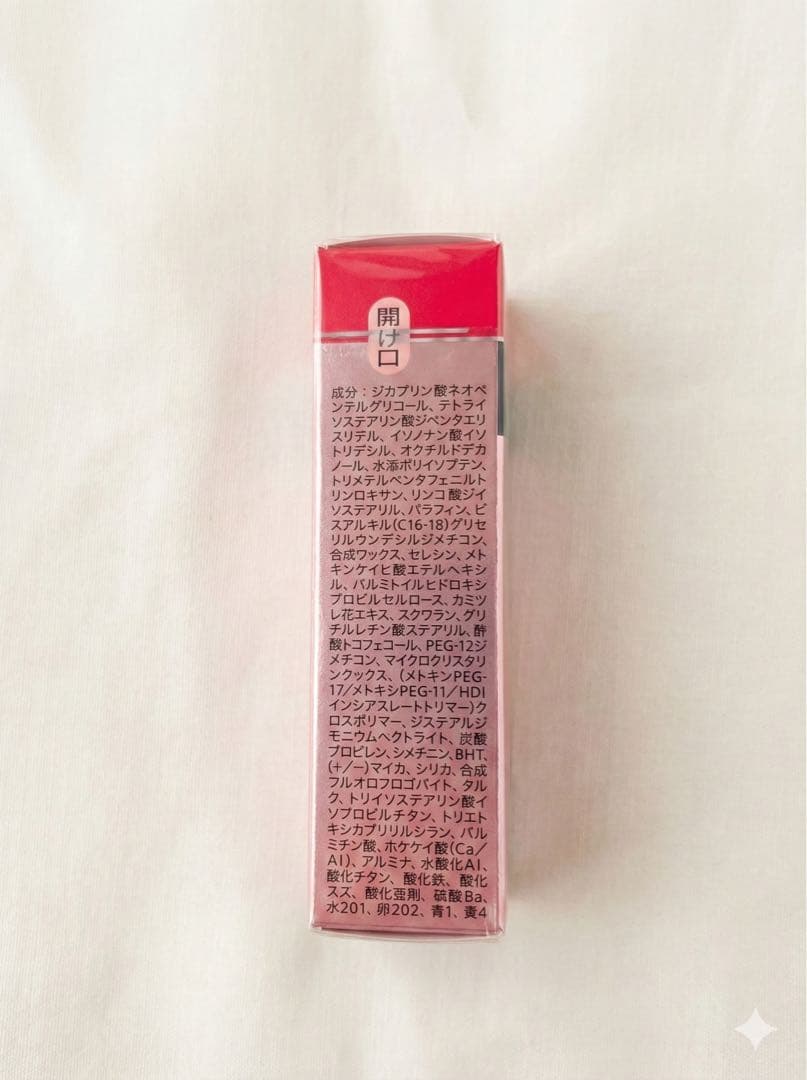 開け口
成分：ジカプリン酸ネオペ
ンテルグリコール、テトライ
ソステアリン酸ジペンタエリ
スリデル、イソノナン酸イソ
トリデシル、オクチルドデカ
ノール、水添ポリイソプテン、
トリメテルペンタフェニルト
リンロキサン、リンコ酸ジイ
ソステアリル、パラフィン、ビ
スアルキル(C16-18)グリセ
リルウンデシルジメチコン、
合成ワックス、セレシン、メト
キンケイヒ酸エテルヘキシ
ル、バルミトイルヒドロキシ
プロピルセルロース、カミツ
レ花エキス、スクワラン、グリ
チルレチン酸ステアリル、酢
酸トコフェコール、PEG-12ジ
メチコン、マイクロクリスタリ
ンクックス、(メトキンPEG-
17／メトキシPEG-11／HDI
インシアスレートトリマー)ク
ロスポリマー、ジステアルジ
モニウムヘクトライト、炭酸
プロビレン、シメチニン、BHT、
(+／−)マイカ、シリカ、合成
フルオロフロゴバイト、タル
ク、トリイソステアリン酸イ
ソプロピルチタン、トリエト
キシカプリリルシラン、パル
ミチン酸、ホケケイ酸(Ca／
Al)、アルミナ、水酸化Al、
酸化チタン、酸化鉄、酸化
スズ、酸化亜剤、硫酸Ba、
水201、卵202、青1、4